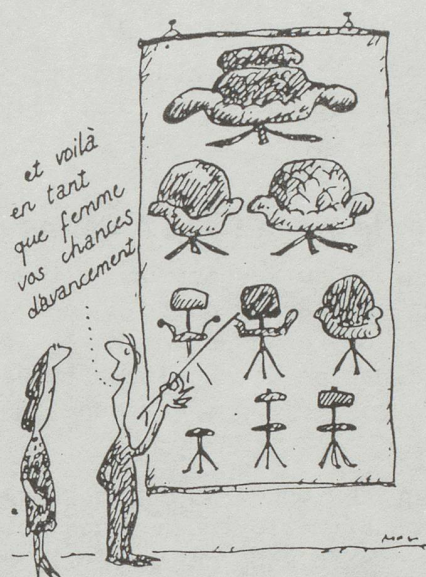 et voilà
en tant
que femme
vos chances
d'avancement